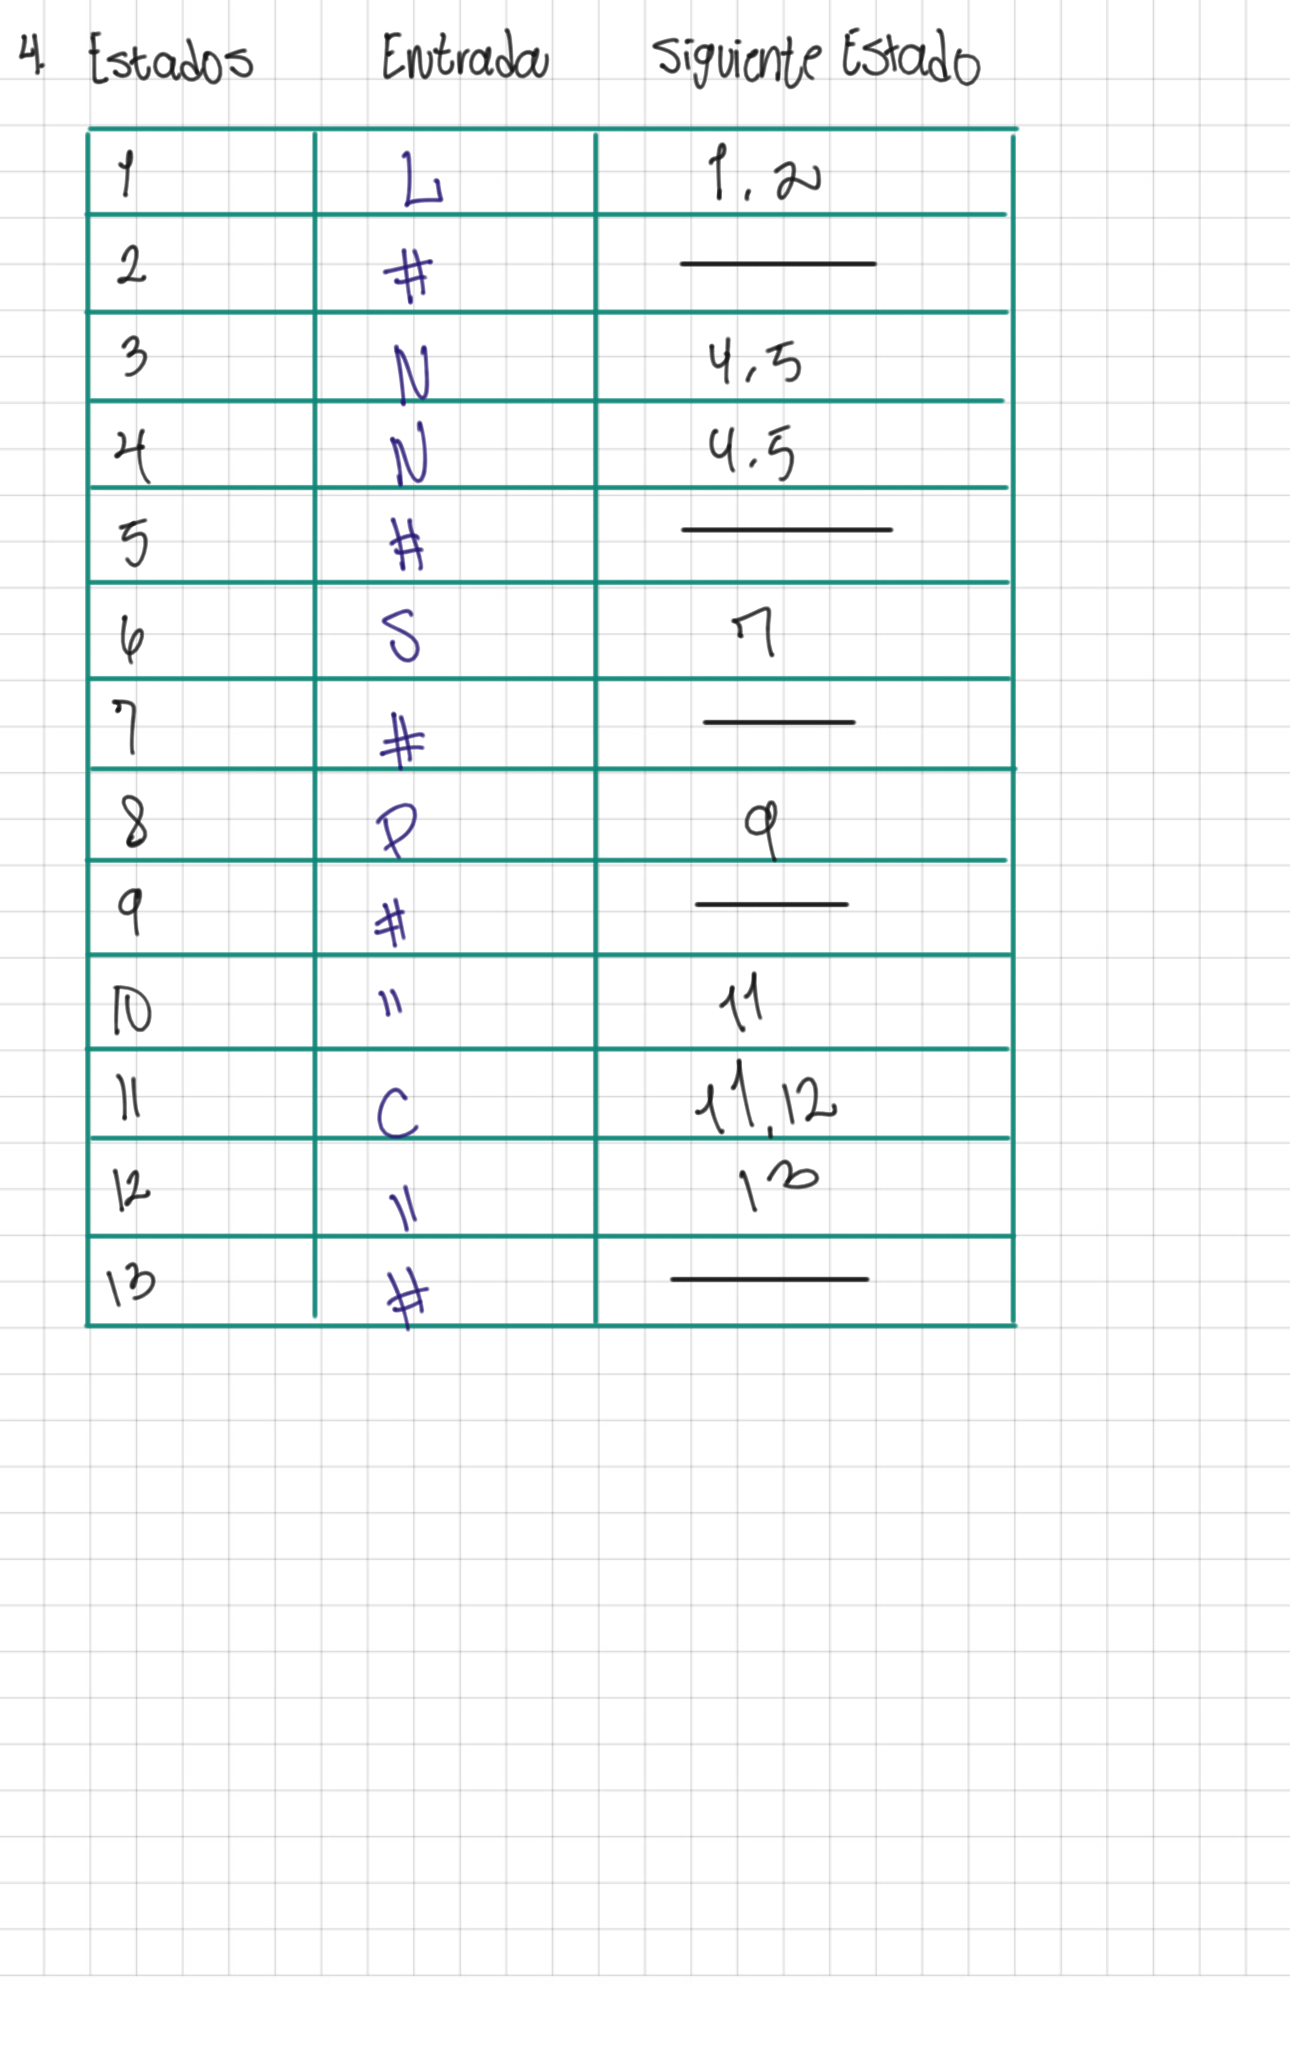 4. Estados Entrada Siguiente Estado
1 L 1, 2
2 # —
3 N 4, 5
4 N 4, 5
5 # —
6 S 7
7 # —
8 P 9
9 # —
10 " 11
11 C 11, 12
12 " 13
13 # —